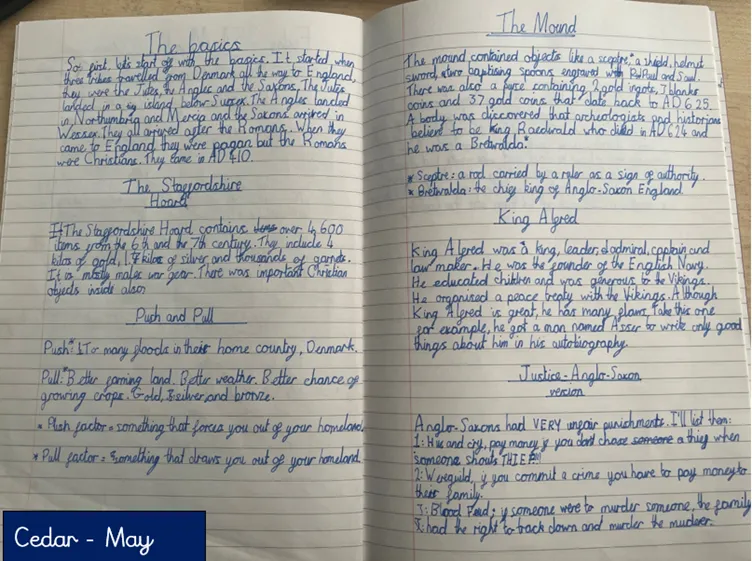 The basics
So first, lets start off with the basics. It started when
three tribes travelled from Denmark all the way to England,
they were the Jutes, the Angles and the Saxons. The Jutes
landed in a island below Sussex. The Angles landed
in Northumbria and Mercia and the Saxons arrived in
Wessex. They all arrived after the Romans. When they
came to England they were pagan but the Romans
were Christians. They came in AD 410.
The Staffordshire
Hoard
The Staffordshire Hoard contains over 4,600
items from the 6th and the 7th century. They include 4
kilos of gold, 1.7 kilos of silver and thousands of garnets.
It is mostly males war gear. There was important Christian
objects inside also.
Push and Pull
Push:* To many floods in their home country, Denmark.
Pull:* Better farming land. Better weather. Better chance of
growing crops. Gold, silver and bronze.
* Push factor = something that forces you out of your homeland.
* Pull factor = something that draws you out of your homeland.
The Mound
The mound contained objects like a sceptre,* a shield, helmet
sword, two baptising spoons engraved with Paul and Saul.
There was also a purse containing 2 gold ingots, 3 blanks
coins and 37 gold coins that date back to AD 625.
A body was discovered that archeologists and historians
believe to be King Raedwald who died in AD 624 and
he was a Bretwalda.*
* Sceptre: a rod carried by a ruler as a sign of authority.
* Bretwalda: the chief king of Anglo-Saxon England.
King Alfred
King Alfred was a king, leader, admiral, captain and
law maker. He was the founder of the English Navy.
He educated children and was generous to the Vikings.
He organised a peace treaty with the Vikings. Although
King Alfred is great, he has many flaws. Take this one
for example, he got a man named Asser to write only good
things about him in his autobiography.
Justice - Anglo-Saxon
version
Anglo-Saxons had VERY unfair punishments. I'll list them:
1: Hue and cry, pay money if you dont chase someone a thief when
someone shouts THIEF!
2: Wereguild, if you commit a crime you have to pay money to
their family.
3: Blood Feud: if someone were to murder someone, the family
had the right to track down and murder the murderer.
Cedar - May